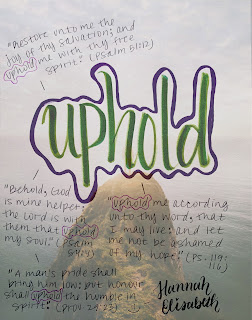 "Restore unto me the
joy of thy salvation; and
uphold me with thy free
spirit." (Psalm 51:12)
uphold
"Behold, God
is mine helper;
the Lord is with
them that uphold
my soul." (Psalm
54:4)
"Uphold me according
unto thy word, that
I may live: and let
me not be ashamed
of my hope." (Ps. 119:
116)
"A man's pride shall
bring him low: but honour
shall uphold the humble in
spirit." (Prov. 29:23)
Hannah
Elisabeth